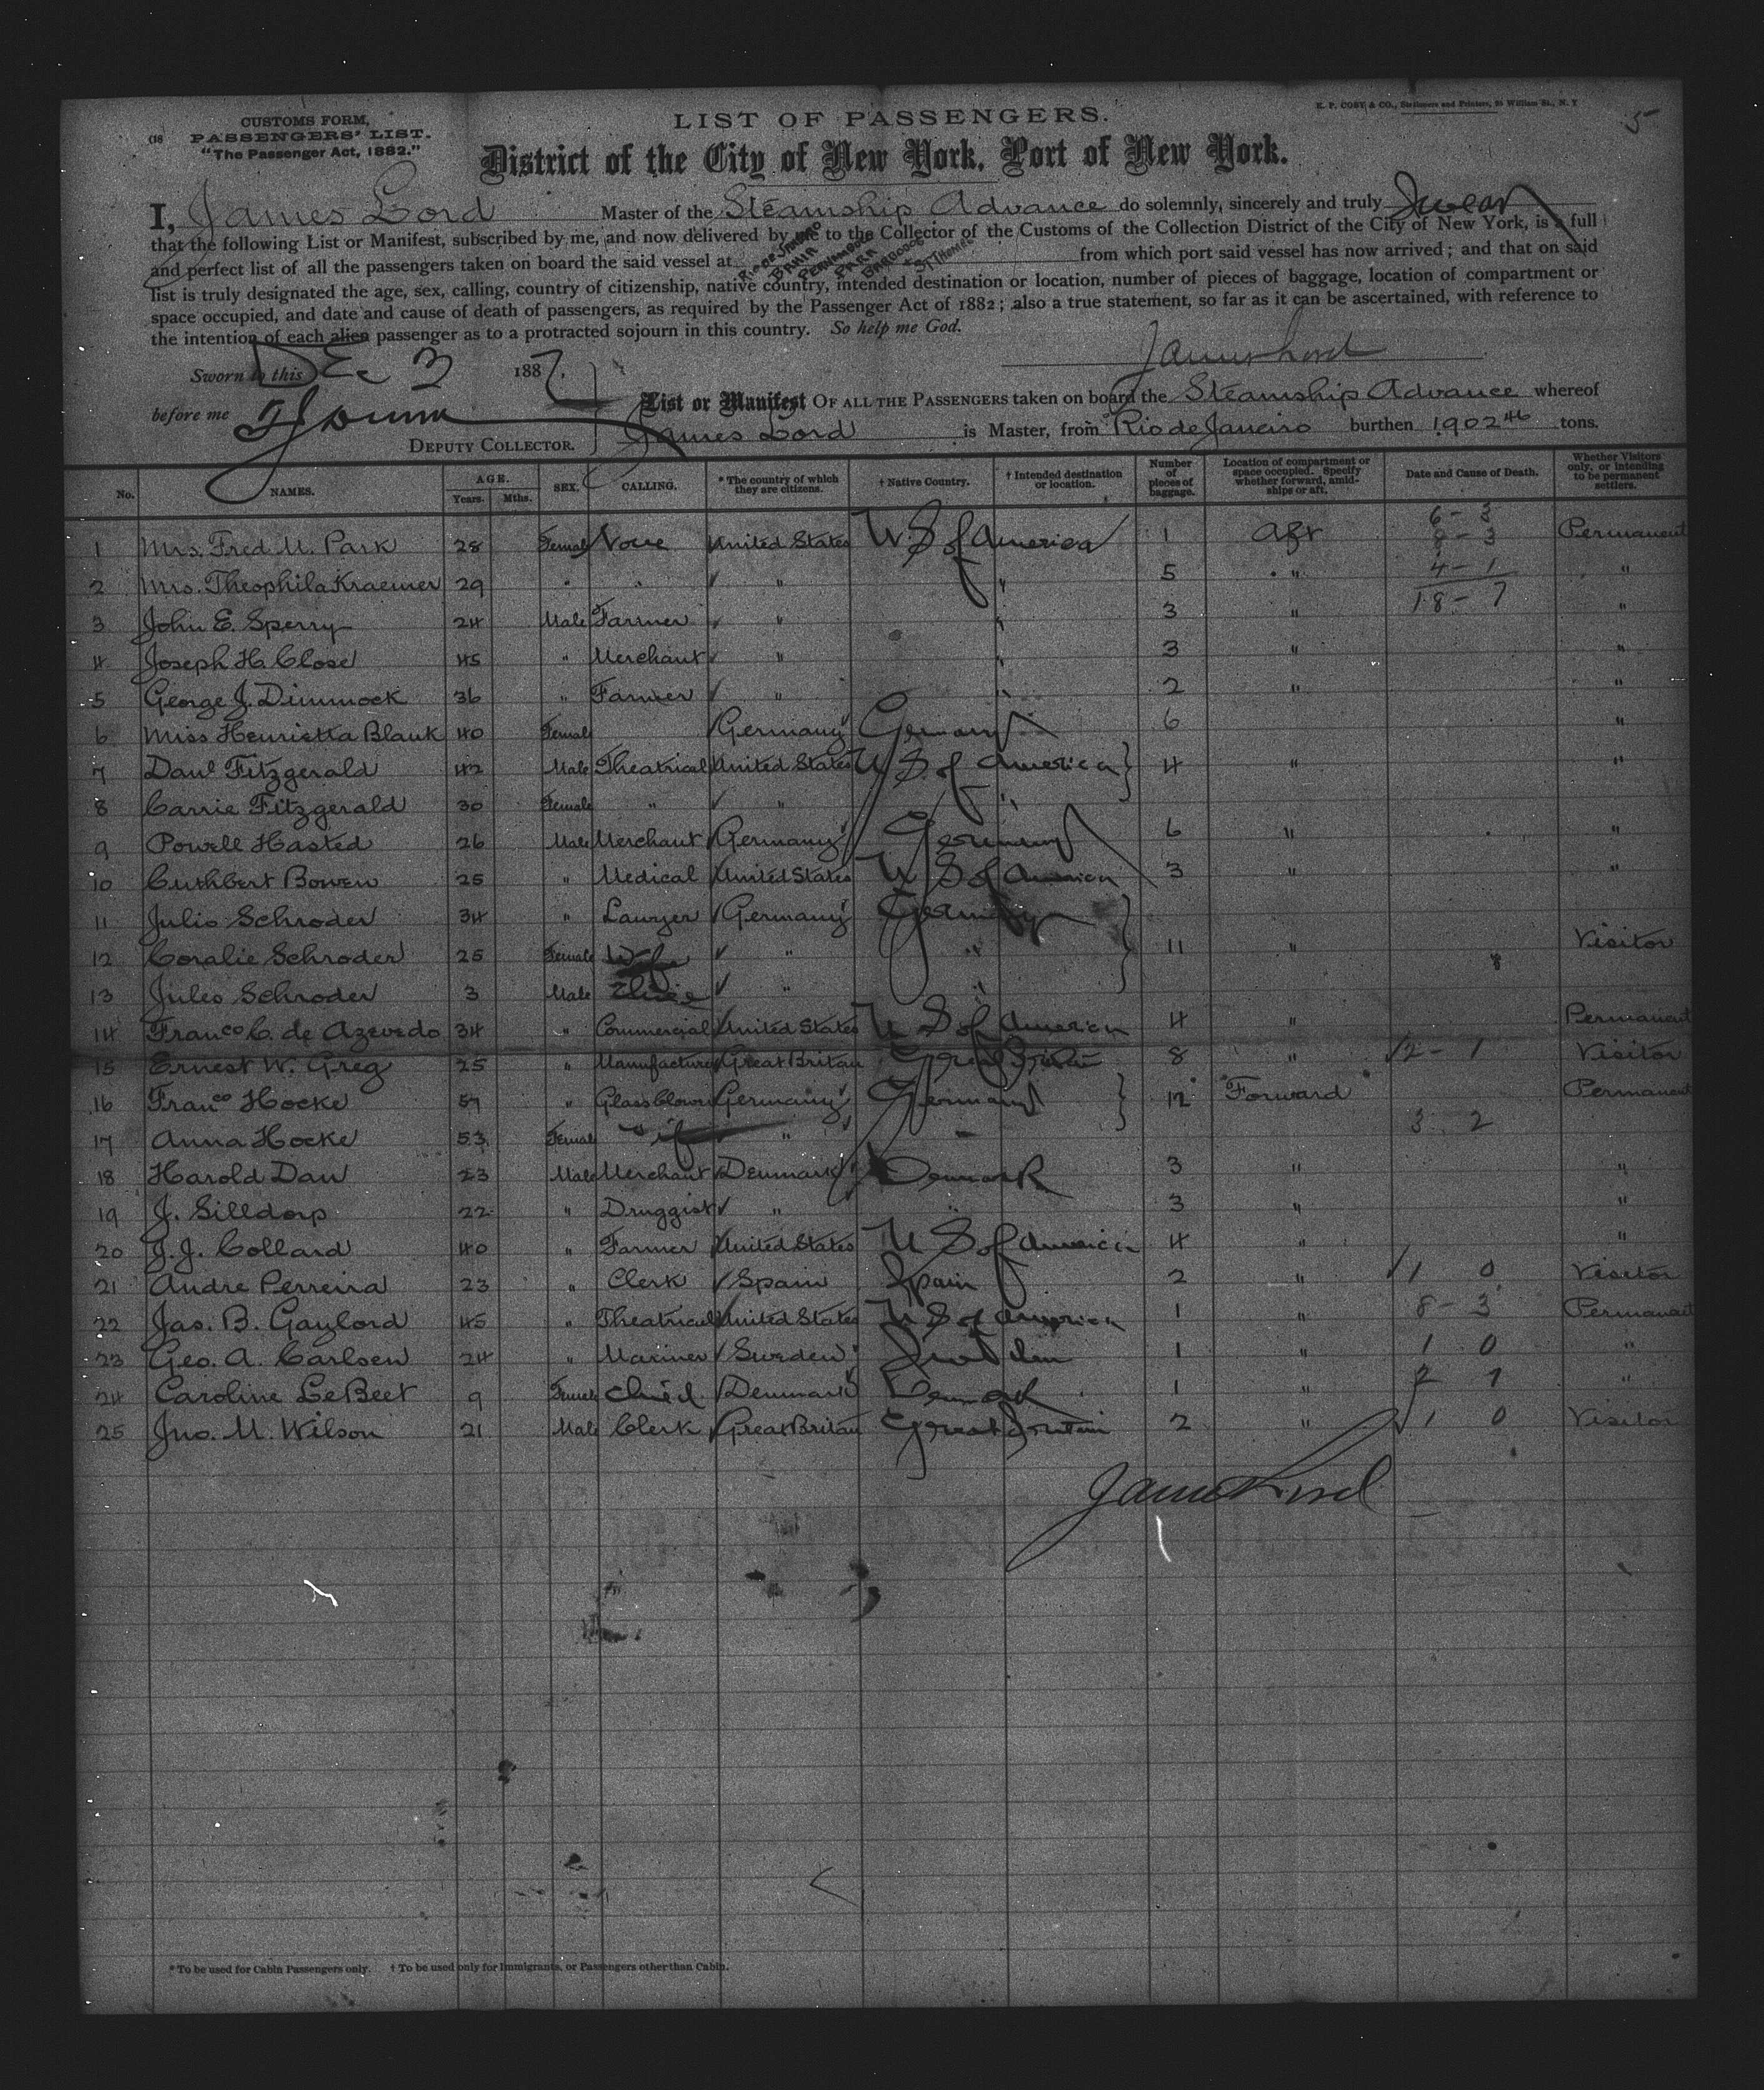 CUSTOMS FORM,
PASSENGERS' LIST.
"The Passenger Act, 1882."
LIST OF PASSENGERS.
E. P. COBY & CO., Stationers and Printers, 95 William St., N. Y.
5
District of the City of New York, Port of New York.
I, James Lord Master of the Steamship Advance do solemnly, sincerely and truly Swear
that the following List or Manifest, subscribed by me, and now delivered by me to the Collector of the Customs of the Collection District of the City of New York, is a full
and perfect list of all the passengers taken on board the said vessel at RIO DE JANEIRO BAHIA PERNAMBUCO PARA BARBODOS & ST THOMAS from which port said vessel has now arrived; and that on said
list is truly designated the age, sex, calling, country of citizenship, native country, intended destination or location, number of pieces of baggage, location of compartment or
space occupied, and date and cause of death of passengers, as required by the Passenger Act of 1882; also a true statement, so far as it can be ascertained, with reference to
the intention of each alien passenger as to a protracted sojourn in this country. So help me God.
James Lord
Sworn to this Dec 3 1887.
before me
DEPUTY COLLECTOR.
List or Manifest OF ALL THE PASSENGERS taken on board the Steamship Advance whereof
James Lord is Master, from Rio de Janeiro burthen 1902 46 tons.
No. NAMES. AGE. Years. Mths. SEX. CALLING. * The country of which they are citizens. † Native Country. † Intended destination or location. Number of pieces of baggage. Location of compartment or space occupied. Specify whether forward, amidships or aft. Date and Cause of Death. Whether Visitors only, or intending to be permanent settlers.
1 Mrs. Fred M. Park 28 Female None United States U S of America 1 Aft 6 - 3 8 - 3 Permanent
2 Mrs. Theophila Kraemer 29 " " " " 5 " 4 - 1 "
3 John E. Sperry 24 Male Farmer " " 3 " 18 - 7 "
4 Joseph H. Close 45 " Merchant " " 3 " "
5 George J. Dimmock 36 " Farmer " " 2 " "
6 Miss Henrietta Blank 40 Female Germany Germany 6 "
7 Danl Fitzgerald 42 Male Theatrical United States U S of America 4 " "
8 Carrie Fitzgerald 30 Female " " "
9 Powell Hasted 26 Male Merchant Germany Germany 6 " "
10 Cuthbert Bowen 25 " Medical United States U S of America 3 " "
11 Julio Schroder 34 " Lawyer Germany Germany
12 Coralie Schroder 25 Female Wife " " 11 " Visitor
13 Jules Schroder 3 Male Child " "
14 Franco C. de Azevedo 34 " Commercial United States U S of America 4 " Permanent
15 Ernest W. Greg 25 " Manufacturer Great Britan Great Britain 8 " 2 - 1 Visitor
16 Franco Hocke 57 " Glass blower Germany Germany 12 "Forward" Permanent
17 Anna Hocke 53 Female Wife " 3 2
18 Harold Dan 23 Male Merchant Denmark Denmark 3 " "
19 J. Silldorp 22 " Druggist " " 3 " "
20 J. J. Collard 40 " Farmer United States U S of America 4 " "
21 Andre Perreira 23 " Clerk Spain Spain 2 " 1 0 Visitor
22 Jas. B. Gaylord 45 " Theatrical United States U S of America 1 " 8 - 3 Permanent
23 Geo. A. Carlsen 24 " Mariner Sweden Sweden 1 " 1 0 "
24 Caroline LeBeet 9 Female Child Denmark Denmark 1 " 2 1 "
25 Jno. M. Wilson 21 Male Clerk Great Britan Great Britain 2 " 1 0 Visitor
James Lord
* To be used for Cabin Passengers only. † To be used only for Immigrants, or Passengers other than Cabin.